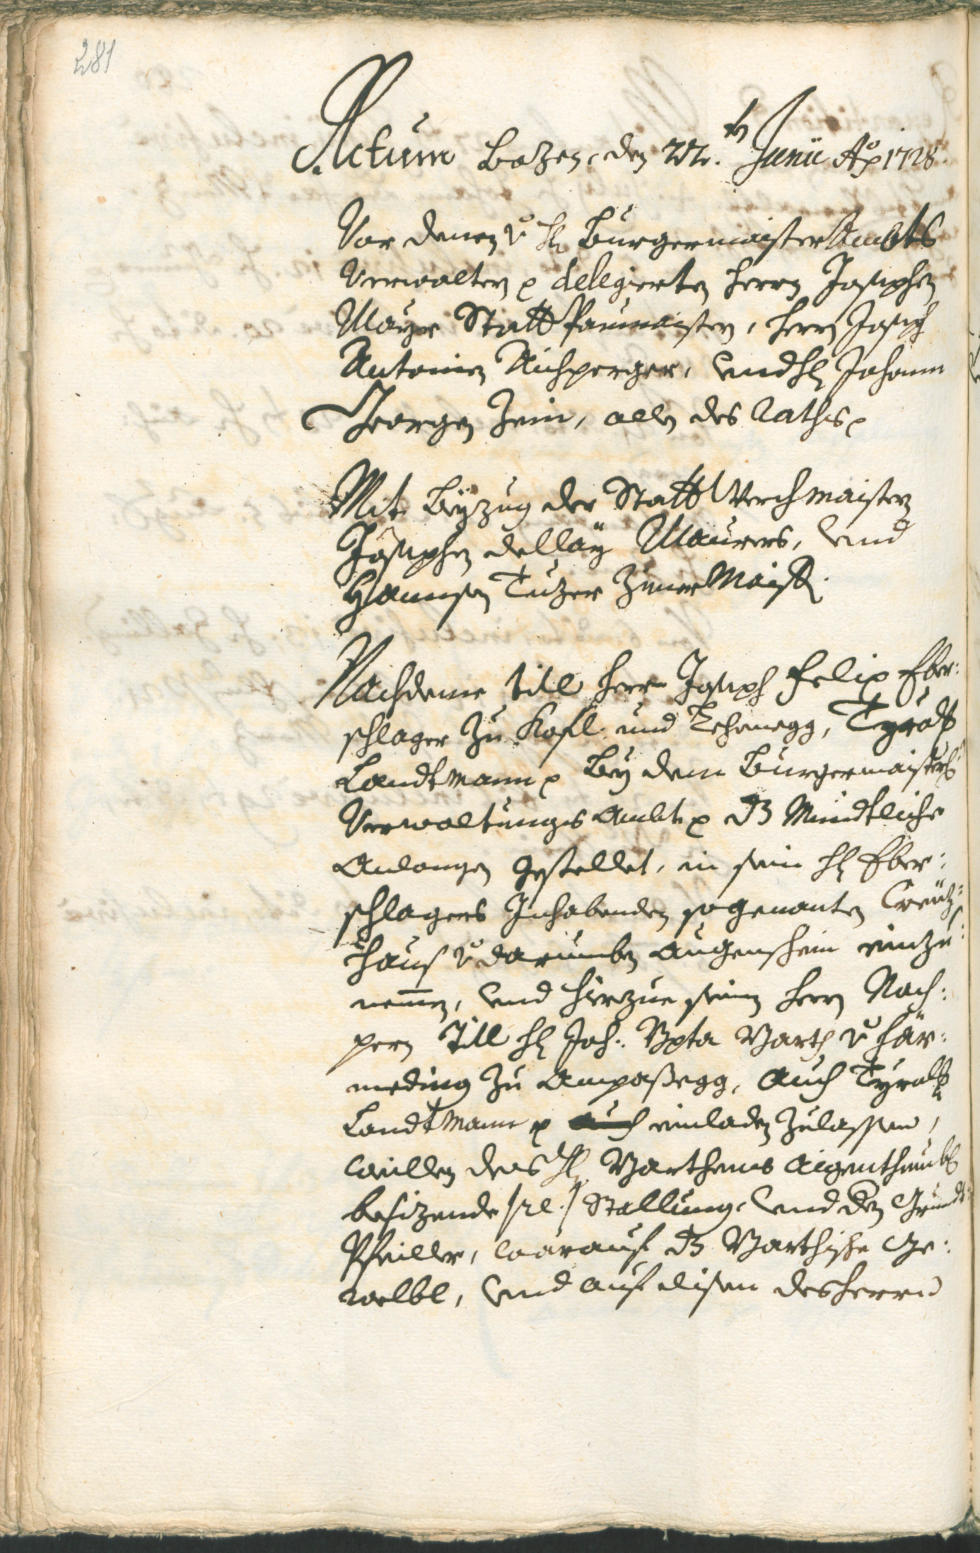 281
Actum Bozen, den 22.ᵗᵉⁿ Junii Aō 1728.
Vor denen v: H: Burgermaister Ambts
Verwalter p delegierten Herrn Josephen
Mayr Statt Paumaister, Herrn Joseph
Antonien Aichperger, und H: Johann
Georgen Zein, allen des Raths p
Mit Beyzug der Statt Werchmaister
Josephen dellay Maurers, und
Hannsen Tuzer ZimerMaistr.
Nachdeme titl Herr Joseph Felix Eber:
schlager zu Kofl und Tschenegg, Tyrolls
Landtmann p bey dem Burgermaisters
Verwaltungs Ambt p dz Mündtliche
Anlangen gestellet, in sein H: Eber:
schlagers Inhabenden sogenanten Creuz:
haus v: darumben augenschein einzu:
nemmen, und hierzue seinen Herrn Nach:
pern Titl H: Joh: Bpta Barth v: Här:
meding zu Ampaßegg, auch Tyrolls
Landtmann p auch einladen zulassen,
willen des H: Barthens aigenthumbl:
besizende /: s: v: / Stallung, und den Grundt
Pfeiller, worauf dz Barthische Ge:
welbl, und auf disen des Herrn